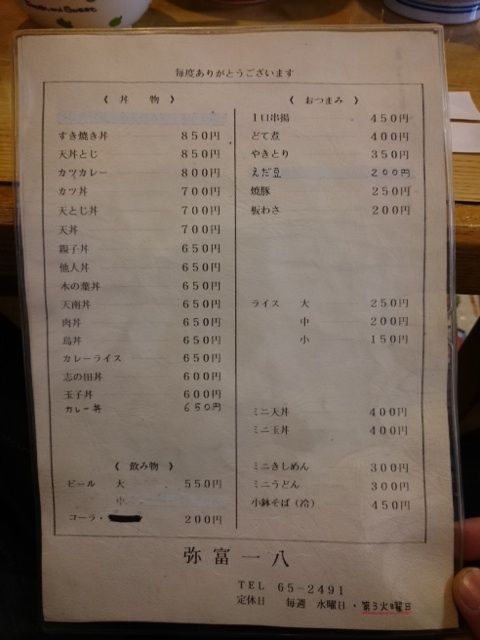 毎度ありがとうございます
《 丼 物 》
すき焼き丼 850円
天丼とじ 850円
カツカレー 800円
カツ丼 700円
天とじ丼 700円
天丼 700円
親子丼 650円
他人丼 650円
木の葉丼 650円
天南丼 650円
肉丼 650円
鳥丼 650円
カレーライス 650円
志の田丼 600円
玉子丼 600円
カレー丼 650円
《 飲み物 》
ビール 大 550円
中
コーラ・ 200円
《 おつまみ 》
1口串揚 450円
どて煮 400円
やきとり 350円
えだ豆 200円
焼豚 250円
板わさ 200円
ライス 大 250円
中 200円
小 150円
ミニ天丼 400円
ミニ玉丼 400円
ミニきしめん 300円
ミニうどん 300円
小鉢そば（冷） 450円
弥富一八
TEL 65-2491
定休日 毎週 水曜日・第3火曜日